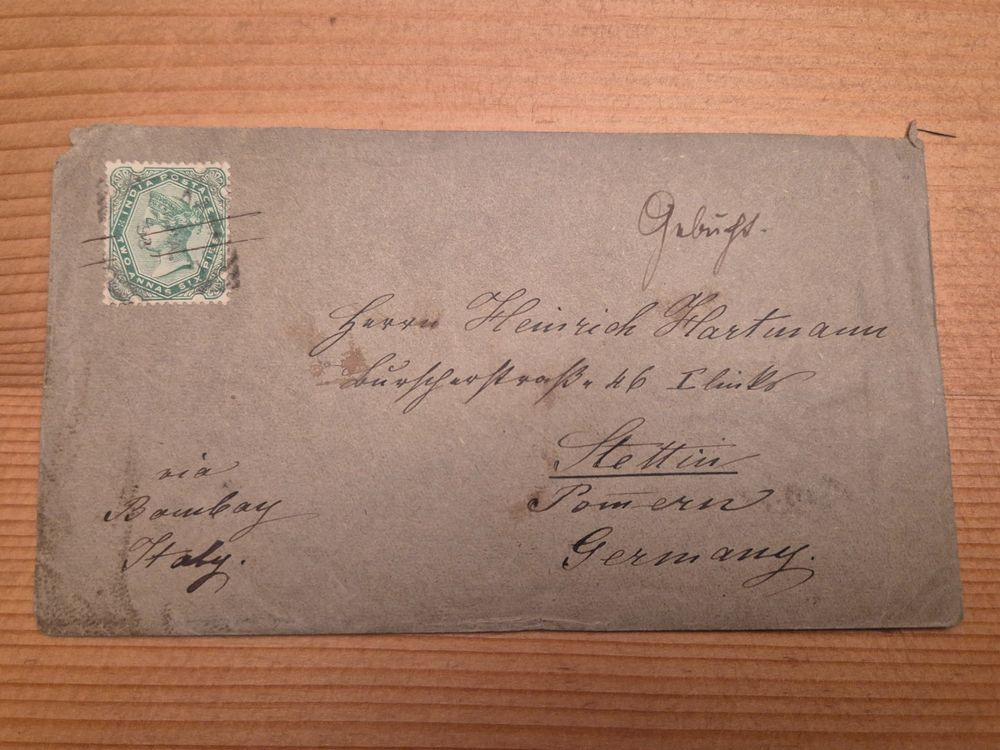 INDIA POSTAGE
TWO ANNAS SIX PIES
Gebucht.
Herrn Heinrich Hartmann
Burscherstraße 46 I links
Stettin
Pom̅ern
Germany.
via
Bombay
Italy.